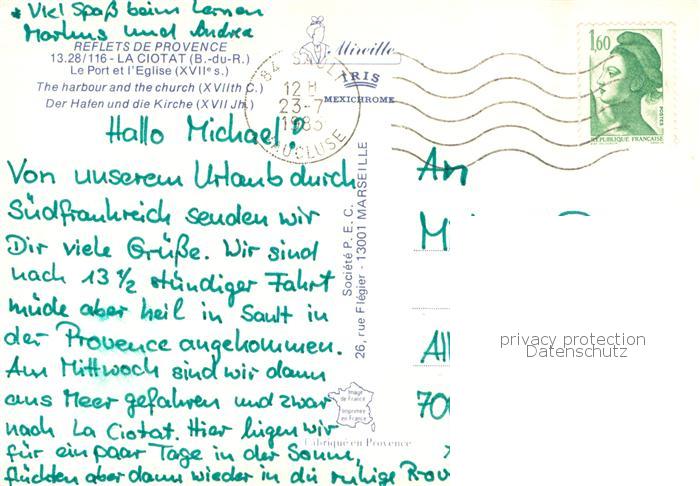 * Viel Spaß beim Lernen
Markus und Andrea
REFLETS DE PROVENCE
13.28/116 - LA CIOTAT (B.-du-R.)
Le Port et l'Eglise (XVIIe s.)
The harbour and the church (XVIIth C.)
Der Hafen und die Kirche (XVII Jh.)
Mireille
IRIS
MEXICHROME
84 SAULT
12 H
23-7
1985
VAUCLUSE
1,60
POSTES
REPUBLIQUE FRANCAISE
Hallo Michael!
Von unserem Urlaub durch
Südfrankreich senden wir
Dir viele Grüße. Wir sind
nach 13 1/2 stündiger Fahrt
müde aber heil in Sault in
der Provence angekommen.
Am Mittwoch sind wir dann
ans Meer gefahren und zwar
nach La Ciotat. Hier liegen wir
für ein paar Tage in der Sonne,
flüchten aber dann wieder in die ruhige Prov
Société P.E.C.
26, rue Flégier - 13001 MARSEILLE
Image
de France
Imprimée
en France
Fabriqué en Provence
An
M
All
700
privacy protection
Datenschutz